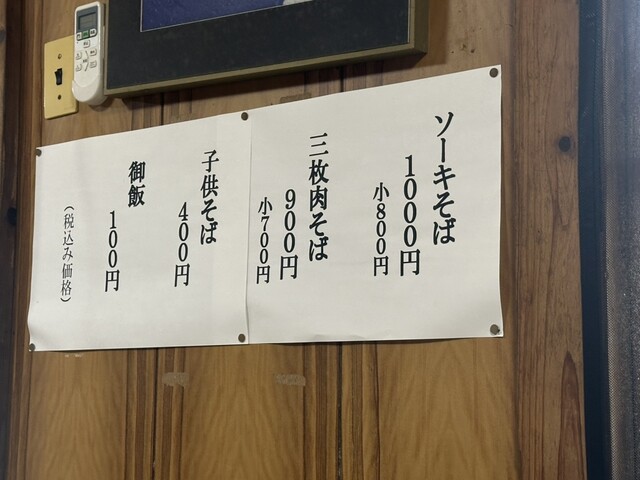 ソーキそば
1000円
小800円
三枚肉そば
900円
小700円
子供そば
400円
御飯
100円
（税込み価格）